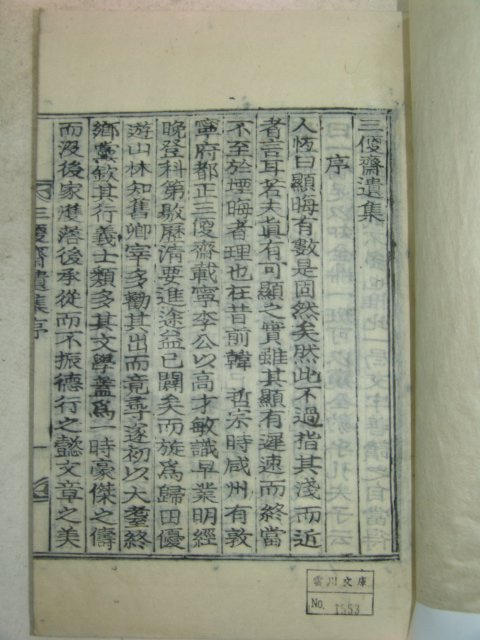 三復齋遺集
序
人恆曰顯晦有數是固然矣然此不過指其淺而近
者言耳若夫眞有可顯之實雖其顯有遲速而終當
不至於堙晦者理也在昔前韓 哲宗時咸州有敦
寧府都正三復齋載寧李公以高才敏識早業明經
晚登科第敭歷淸要進途益已闢矣而旋爲歸田優
遊山林知舊卿宰多勸其出而竟尋遂初以大耋終
鄉黨敏其行義士類多其文學蓋爲一時豪傑之儔
而沒後家世落後承從而不振德行之懿文章之美
三復齋遺集序
一
雲川文庫
No. 1553